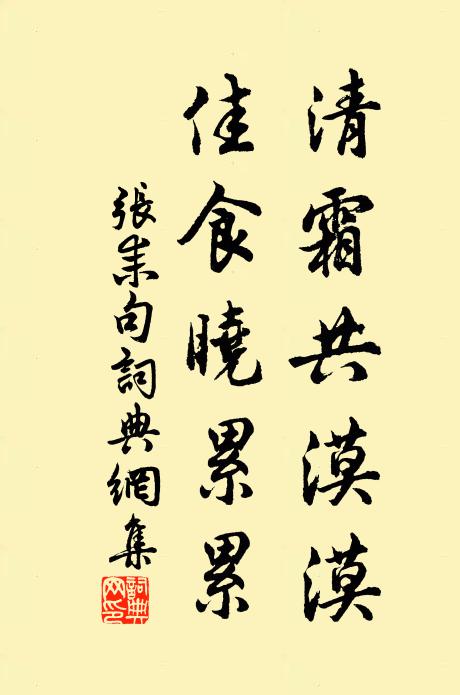 清霜共漠漠
佳食曉累累
張耒句詞典網集
詞典网印